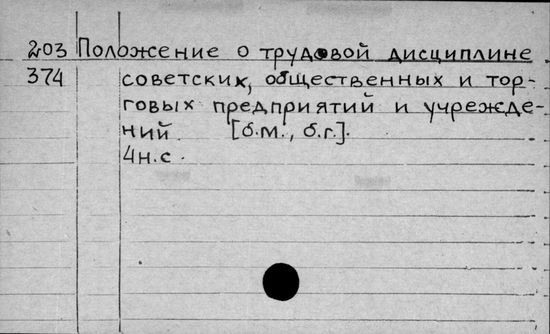 203 Положение о трудовой дисциплине
374 советских, общественных и тор-
говых предприятий и учрежде-
ний [б.м., б.г.].
4н.с.